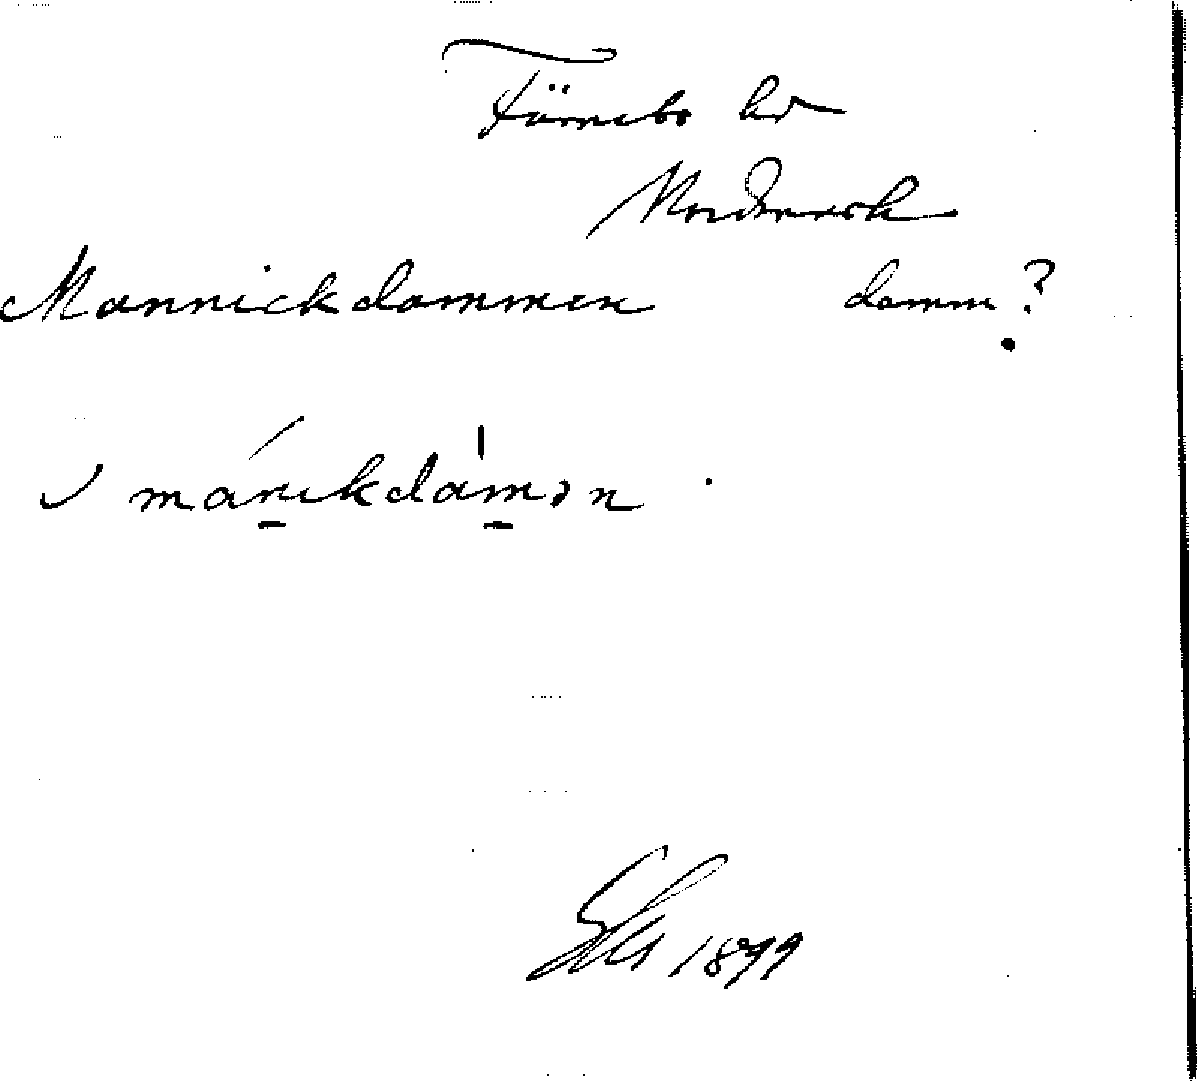 Färnebo hd
Nordmark
Mannickdammen damm?
mánıkdámən
1879